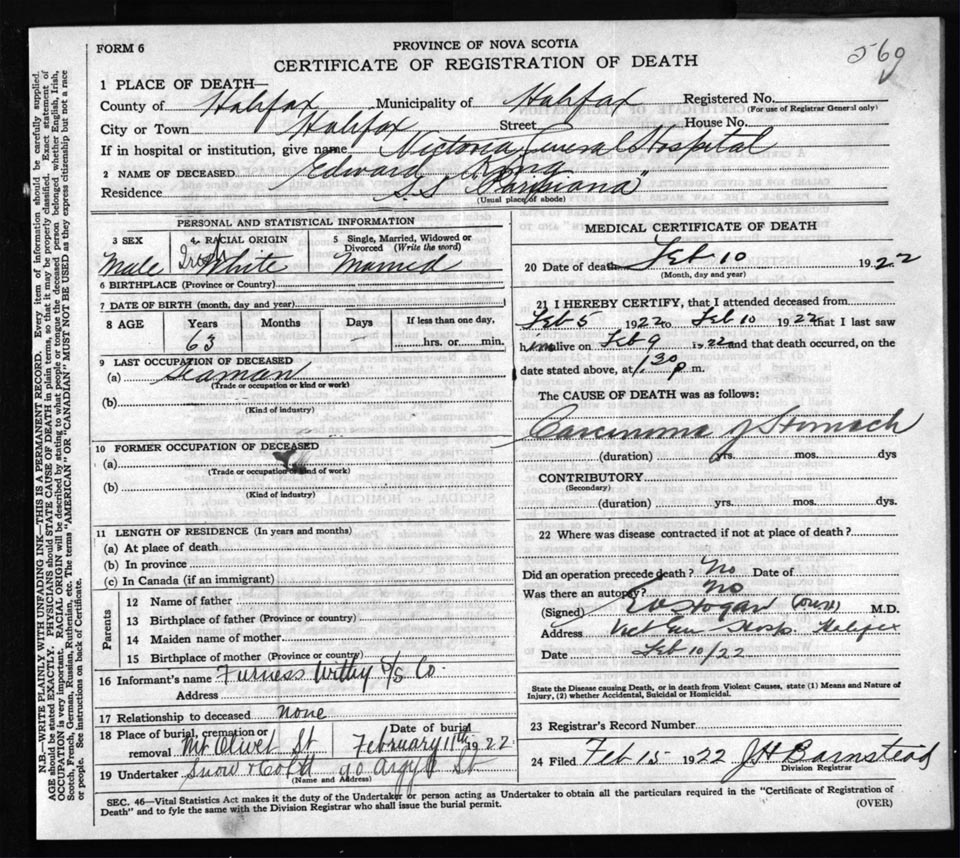 FORM 6
PROVINCE OF NOVA SCOTIA
569
CERTIFICATE OF REGISTRATION OF DEATH
1 PLACE OF DEATH—
County of Halifax Municipality of Halifax Registered No.
(For use of Registrar General only)
City or Town Halifax Street House No.
If in hospital or institution, give name Victoria General Hospital
2 NAME OF DECEASED Edward King
Residence S.S "Parisiana"
(Usual place of abode)
PERSONAL AND STATISTICAL INFORMATION
3 SEX 4 RACIAL ORIGIN 5 Single, Married, Widowed or Divorced (Write the word)
Male Irish White Married
6 BIRTHPLACE (Province or Country)
7 DATE OF BIRTH (month, day and year)
8 AGE Years Months Days If less than one day,
63 — hrs. or min.
9 LAST OCCUPATION OF DECEASED
(a) Seaman
(Trade or occupation or kind or work)
(b)
(Kind of industry)
10 FORMER OCCUPATION OF DECEASED
(a)
(Trade or occupation or kind of work)
(b)
(Kind of industry)
11 LENGTH OF RESIDENCE (In years and months)
(a) At place of death
(b) In province
(c) In Canada (if an immigrant)
Parents
12 Name of father
13 Birthplace of father (Province or country)
14 Maiden name of mother
15 Birthplace of mother (Province or country)
16 Informant's name Furness Withy S/S Co
Address
17 Relationship to deceased none
18 Place of burial, cremation or removal Mt Olivet St
Date of burial February 11th 1922
19 Undertaker Snow & Co Ltd 90 Argyle St
(Name and Address)
MEDICAL CERTIFICATE OF DEATH
20 Date of death Feb 10 1922
(Month, day and year)
21 I HEREBY CERTIFY, that I attended deceased from
Feb 5 1922 to Feb 10 1922 that I last saw
him alive on Feb 9 1922 and that death occurred, on the
date stated above, at 1.30 p m.
The CAUSE OF DEATH was as follows:
Carcinoma of Stomach
(duration) yrs. mos. dys
CONTRIBUTORY
(Secondary)
(duration) yrs. mos. dys.
22 Where was disease contracted if not at place of death?
Did an operation precede death? No Date of
Was there an autopsy? No
(Signed) Hogan M.D.
Address Vict Gen Hosp Halifax
Date Feb 10/22
State the Disease causing Death, or in death from Violent Causes, state (1) Means and Nature of
Injury, (2) whether Accidental, Suicidal or Homicidal.
23 Registrar's Record Number
24 Filed Feb 15 1922 JH Barnstead
Division Registrar
SEC. 46—Vital Statistics Act makes it the duty of the Undertaker or person acting as Undertaker to obtain all the particulars required in the "Certificate of Registration of
Death" and to fyle the same with the Division Registrar who shall issue the burial permit.
(OVER)
N.B.—WRITE PLAINLY WITH UNFADING INK—THIS IS A PERMANENT RECORD. Every item of information should be carefully supplied.
AGE should be stated EXACTLY. PHYSICIANS should STATE CAUSE OF DEATH in plain terms, so that it may be properly classified. Exact statement of
OCCUPATION is very important. RACIAL ORIGIN will be described by stating to what people or tongue the deceased person belonged whether English, Irish,
Scotch, French, German, Russian, Ruthenian, etc. The terms "AMERICAN" OR "CANADIAN" MUST NOT BE USED as they express citizenship but not a race
or people. See instructions on back of Certificate.